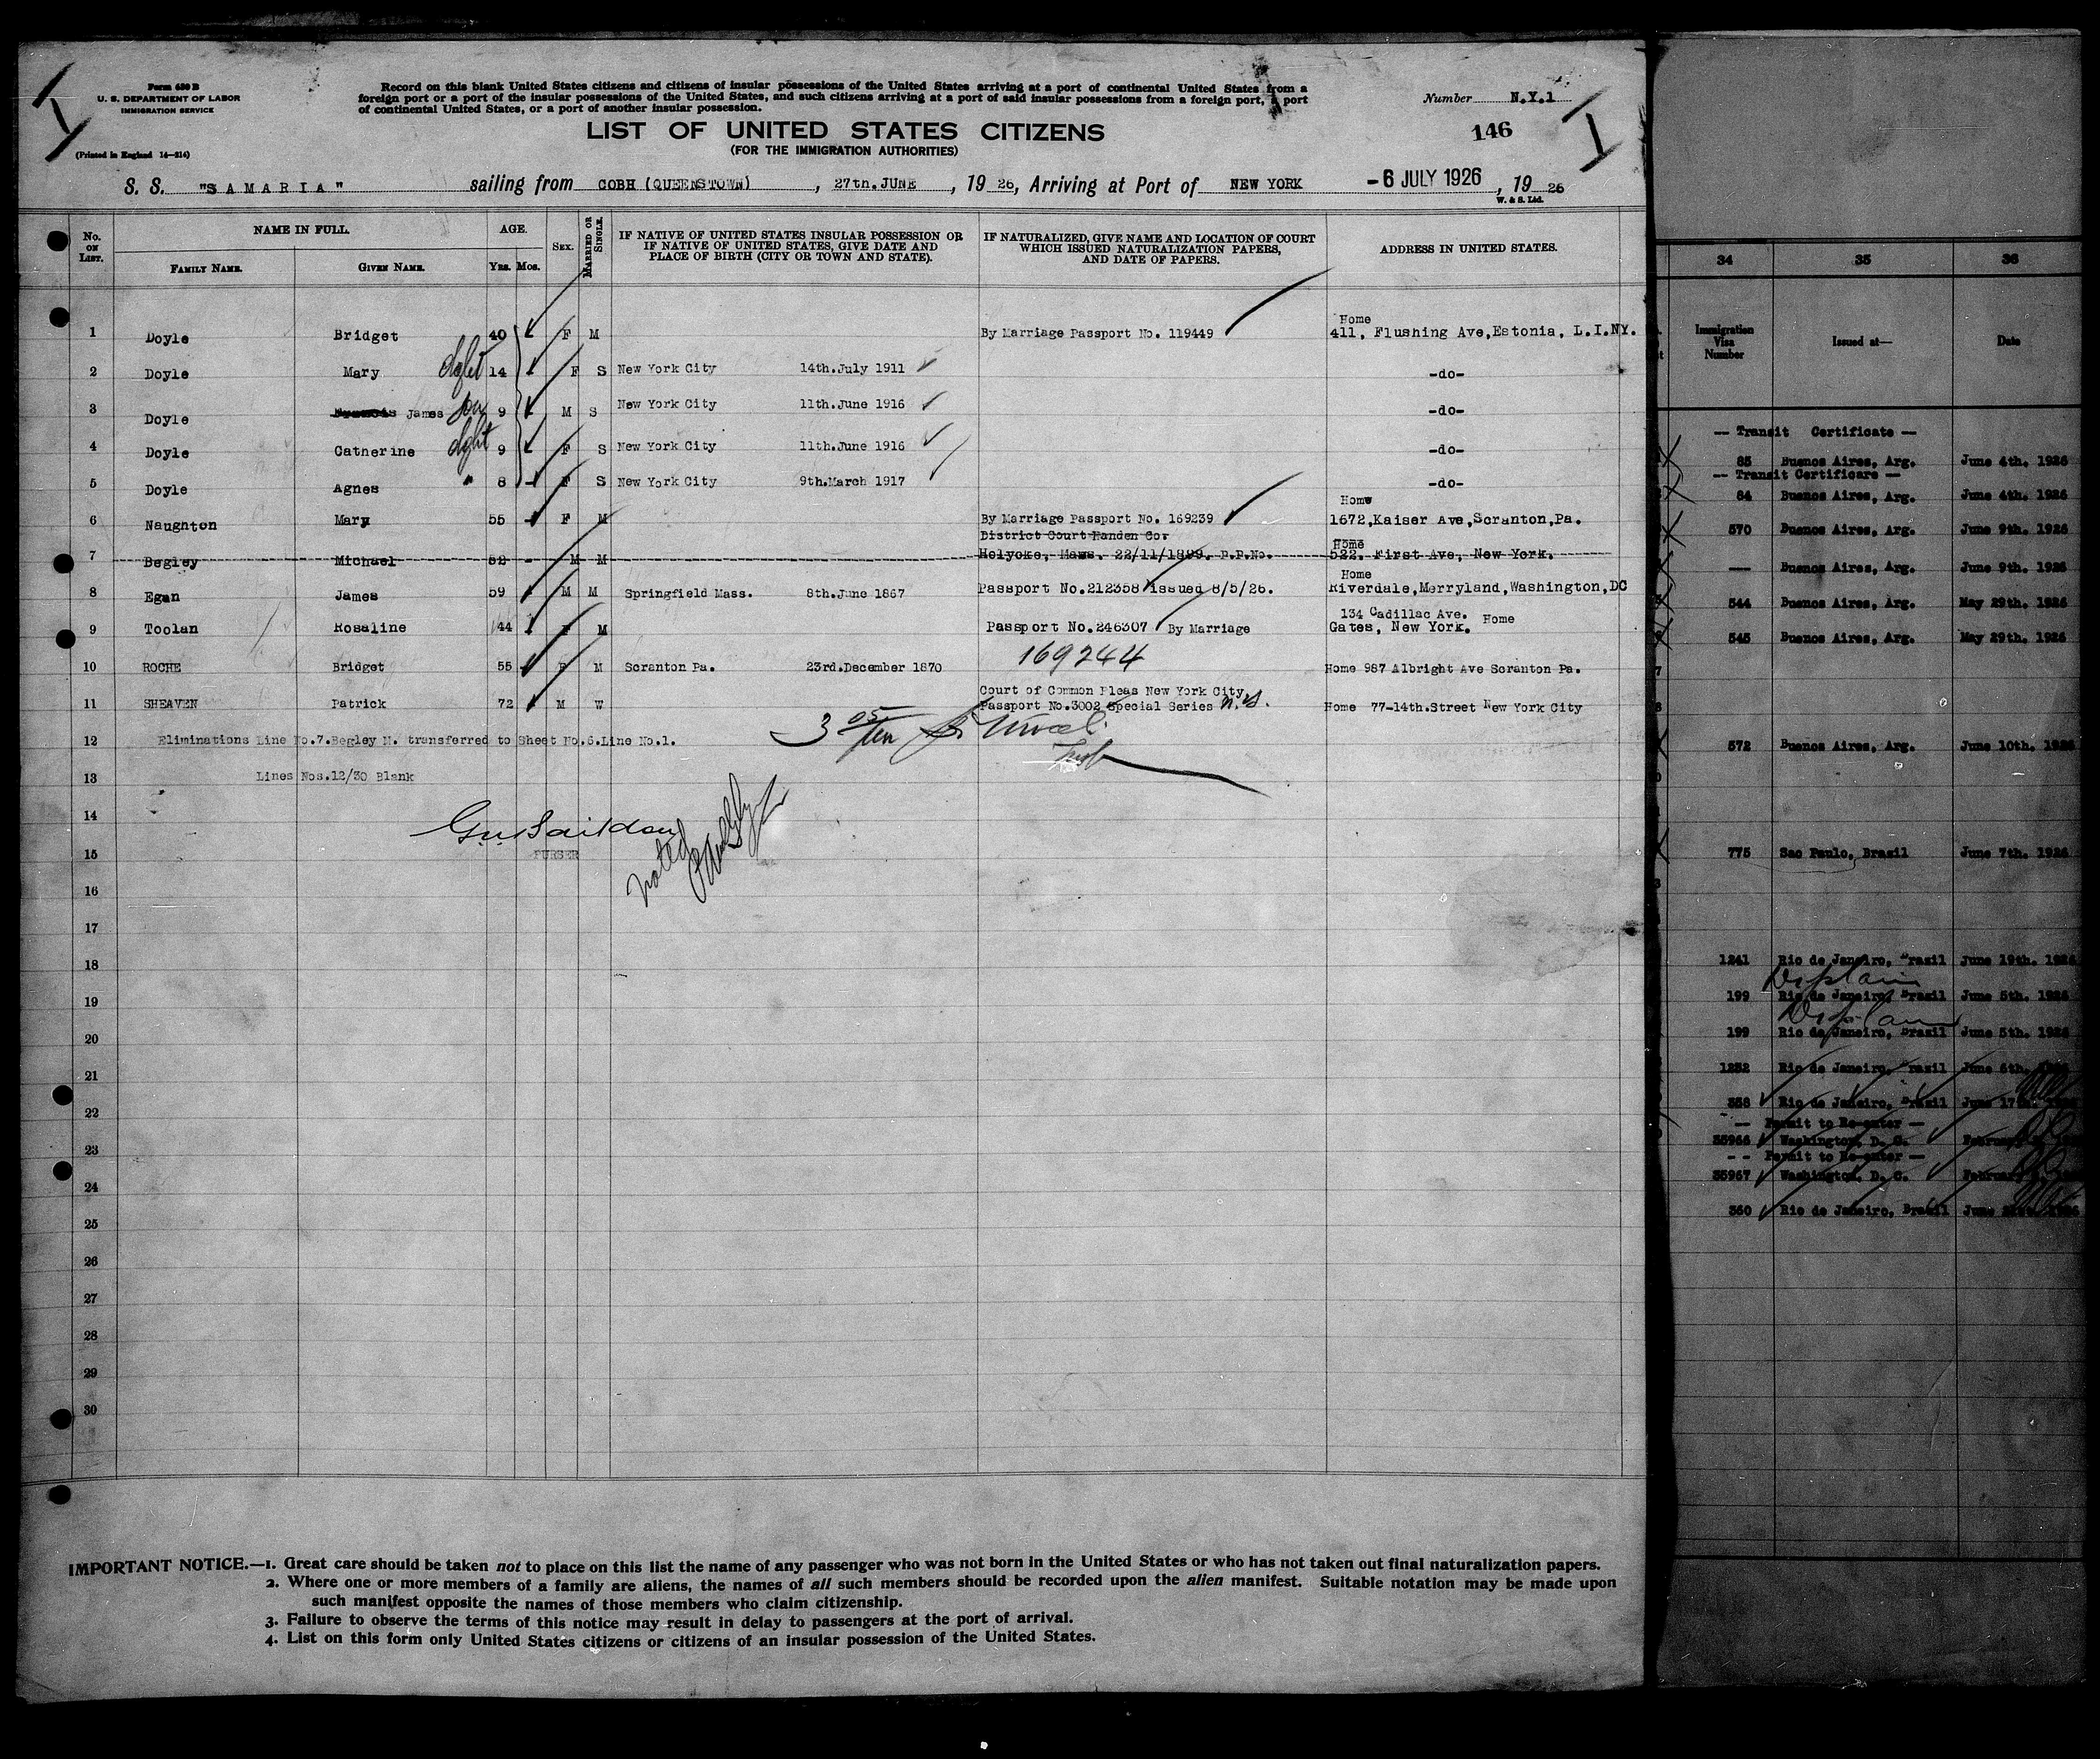 Form 630 B
U. S. DEPARTMENT OF LABOR
IMMIGRATION SERVICE
(Printed in England 14—214)
Record on this blank United States citizens and citizens of insular possessions of the United States arriving at a port of continental United States from a
foreign port or a port of the insular possessions of the United States, and such citizens arriving at a port of said insular possessions from a foreign port, a port
of continental United States, or a port of another insular possession.
LIST OF UNITED STATES CITIZENS
(FOR THE IMMIGRATION AUTHORITIES)
Number N.Y.1
146
S. S. "SAMARIA" sailing from COBH (QUEENSTOWN), 27th.JUNE, 1926, Arriving at Port of NEW YORK -6 JULY 1926, 1926
W. & S. Ltd.
No. ON LIST. NAME IN FULL. AGE. SEX. MARRIED OR SINGLE. IF NATIVE OF UNITED STATES INSULAR POSSESSION OR IF NATIVE OF UNITED STATES, GIVE DATE AND PLACE OF BIRTH (CITY OR TOWN AND STATE). IF NATURALIZED, GIVE NAME AND LOCATION OF COURT WHICH ISSUED NATURALIZATION PAPERS, AND DATE OF PAPERS. ADDRESS IN UNITED STATES.
FAMILY NAME. GIVEN NAME. YRS. MOS.
Home
1 Doyle Bridget 40 F M By Marriage Passport No. 119449 411, Flushing Ave,Estonia, L.I.NY.
2 Doyle Mary dght 14 F S New York City 14th.July 1911 -do-
3 Doyle Francis James son 9 M S New York City 11th.June 1916 -do-
4 Doyle Catherine dght 9 F S New York City 11th.June 1916 -do-
5 Doyle Agnes " 8 F S New York City 9th.March 1917 -do-
Home
6 Naughton Mary 55 F M By Marriage Passport No. 169239 1672,Kaiser Ave,Scranton,Pa.
District Court Handen Co. Home
7 Begley Michael 52 - M M Holyoke, Mass. 22/11/1899. P.P.No. 522. First Ave, New York.
Home
8 Egan James 59 M M Springfield Mass. 8th.June 1867 Passport No.212358 issued 8/5/26. Riverdale,Merryland,Washington,DC
134 Cadillac Ave. Home
9 Toolan Rosaline 44 F M Passport No.246307 By Marriage Gates, New York.
169244
10 ROCHE Bridget 55 F M Scranton Pa. 23rd.December 1870 Home 987 Albright Ave Scranton Pa.
Court of Common Pleas New York City
11 SHEAVEN Patrick 72 M W Passport No.3002 Special Series N.Y. Home 77-14th.Street New York City
12 Eliminations Line No.7.Begley M. transferred to Sheet No.6.Line No.1.
13 Lines Nos.12/30 Blank
14
15 PURSER
noted
16
17
18
19
20
21
22
23
24
25
26
27
28
29
30
IMPORTANT NOTICE.—1. Great care should be taken not to place on this list the name of any passenger who was not born in the United States or who has not taken out final naturalization papers.
2. Where one or more members of a family are aliens, the names of all such members should be recorded upon the alien manifest. Suitable notation may be made upon
such manifest opposite the names of those members who claim citizenship.
3. Failure to observe the terms of this notice may result in delay to passengers at the port of arrival.
4. List on this form only United States citizens or citizens of an insular possession of the United States.
34 35 36
Immigration Visa Number Issued at— Date
-- Transit Certificate --
85 Buenos Aires, Arg. June 4th. 1926
-- Transit Certificare --
84 Buenos Aires, Arg. June 4th. 1926
570 Buenos Aires, Arg. June 9th. 1926
--- Buenos Aires, Arg. June 9th. 1926
544 Buenos Aires, Arg. May 29th. 1926
545 Buenos Aires, Arg. May 29th. 1926
572 Buenos Aires, Arg. June 10th. 1926
775 Sao Paulo, Brasil June 7th. 1926
1241 Rio de Janeiro, Brasil June 19th. 1926
199 Rio de Janeiro, Brasil June 5th. 1926
199 Rio de Janeiro, Brasil June 5th. 1926
1252 Rio de Janeiro, Brasil June 6th.
358 Rio de Janeiro, Brasil June 17th.
-- Permit to Re-enter --
35966 Washington, D. C. February
-- Permit to Re-enter --
35967 Washington, D. C. February
360 Rio de Janeiro, Brasil June